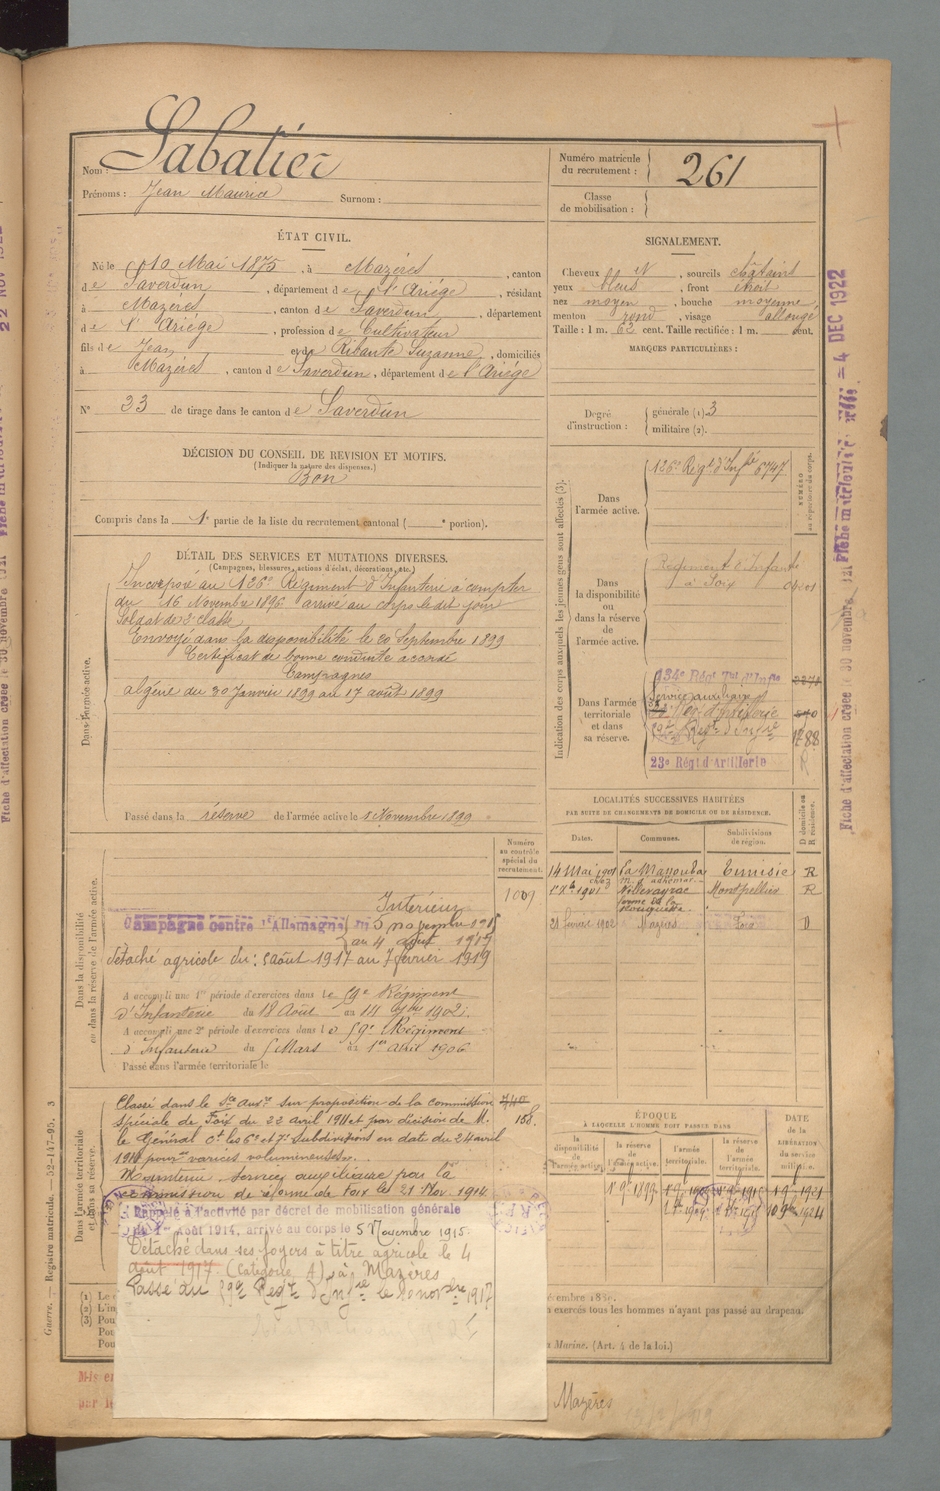 Nom : Sabatier
Prénoms : Jean Maurice Surnom :
Numéro matricule du recrutement : 261
Classe de mobilisation :
ÉTAT CIVIL.
Né le 10 Mai 1875, à Mazères, canton
de Saverdun, département de l'Ariège, résidant
à Mazères, canton de Saverdun, département
de l'Ariège, profession de Cultivateur
fils de Jean et de Ribaute Suzanne, domiciliés
à Mazères, canton de Saverdun, département de l'Ariège
N° 23 de tirage dans le canton de Saverdun
SIGNALEMENT.
Cheveux N, sourcils châtains
yeux bleus, front étroit
nez moyen, bouche moyenne,
menton rond, visage allongé
Taille : 1 m. 62 cent. Taille rectifiée : 1 m. cent.
MARQUES PARTICULIÈRES :
Degré d'instruction : générale (1). 3
militaire (2).
DÉCISION DU CONSEIL DE REVISION ET MOTIFS.
(Indiquer la nature des dispenses.)
Bon
Compris dans la 1e partie de la liste du recrutement cantonal ( e portion).
DÉTAIL DES SERVICES ET MUTATIONS DIVERSES.
(Campagnes, blessures, actions d'éclat, décorations, etc.)
Dans l'armée active.
Incorporé au 126e Régiment d'Infanterie à compter
du 16 Novembre 1896 arrivé au corps le dit jour
Soldat de 2e classe
Envoyé dans la disponibilité le 20 Septembre 1899
Certificat de bonne conduite accordé
Campagnes
Algérie du 30 Janvier 1899 au 17 août 1899
Passé dans la réserve de l'armée active le 1 Novembre 1899
Indication des corps auxquels les jeunes gens sont affectés (3).
NUMÉRO au répertoire du corps.
Dans l'armée active.
126e Régt d'Infie 6747
Dans la disponibilité ou dans la réserve de l'armée active.
Régiment d'Infante
à Foix
Dans l'armée territoriale et dans sa réserve.
134e Régt Tal d'Infie
Service auxiliaire
23e Régt d'Artillerie
LOCALITÉS SUCCESSIVES HABITÉES
PAR SUITE DE CHANGEMENTS DE DOMICILE OU DE RÉSIDENCE.
Dates. Communes. Subdivisions de région. D domicile ou R résidence.
14 Mai 1901 La Manouba Tunisie R
Villeveyrac Montpellier R
21 février 1902 Mazères Foix D
Dans la disponibilité ou dans la réserve de l'armée active.
Numéro au contrôle spécial du recrutement.
1009
Intérieur
Campagne contre l'Allemagne du 5 novembre 1915
au 4 août 1917
détaché agricole du : 5 août 1917 au 7 février 1919
A accompli une 1re période d'exercices dans le 59e Régiment
d'Infanterie du 18 Août au 14 7bre 1902.
A accompli une 2e période d'exercices dans le 59e Régiment
d'Infanterie du 5 Mars au 1er Avril 1906
Passé dans l'armée territoriale le
Dans l'armée territoriale et dans sa réserve.
Classé dans le Sce Auxre sur proposition de la Commission
spéciale de Foix du 22 avril 1911 et par décision de M.
158.
le Général Ct les 6e et 7e Subdivisions en date du 24 avril
pour varices volumineuses.
Maintenu Service auxiliaire par la
commission de réforme de Foix le 21 Nov. 1914
Rappelé à l'activité par décret de mobilisation générale
du 1er août 1914, arrivé au corps le 5 Novembre 1915.
Détaché dans ses foyers à titre agricole le 4
août 1917. (Catégorie A) à Mazères
Passé au 59e Régt d'Infie le 10 novbre 1917
ÉPOQUE
À LAQUELLE L'HOMME DOIT PASSER DANS
la disponibilité de l'armée active. la réserve de l'armée active. l'armée territoriale. la réserve de l'armée territoriale.
DATE de la LIBÉRATION du service militaire.
1er 9bre 1899
écembre 18
à exercés tous les hommes n'ayant pas passé au drapeau.
Marine. (Art. 4 de la loi.)
Mazères
Guerre. — Registre matricule. — 52-147-95. 3
Fiche d'affectation créée le 30 novembre
Fiche matriculaire
4 DEC 1922
22 NOV